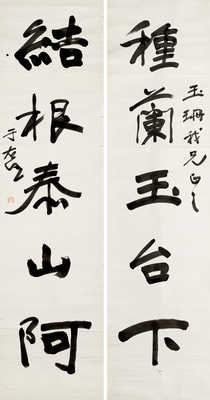 種蘭玉台下
玉珊我兄正之
結根泰山阿
于右任